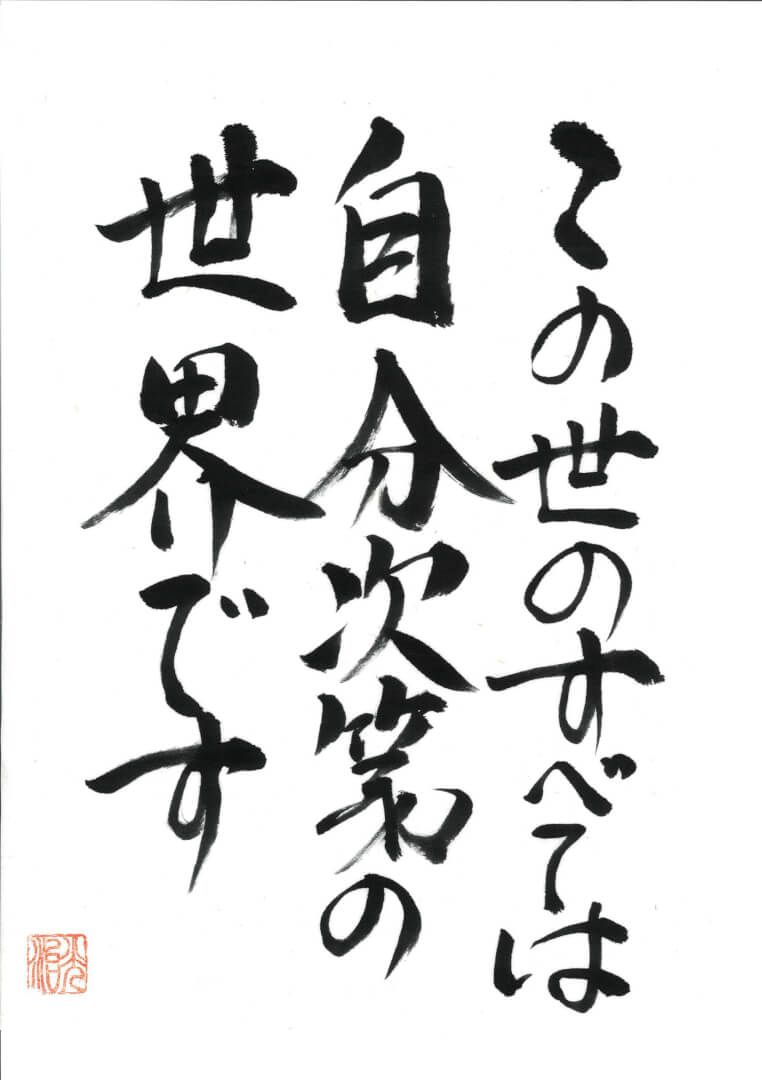 この世のすべては
自分次第の
世界です